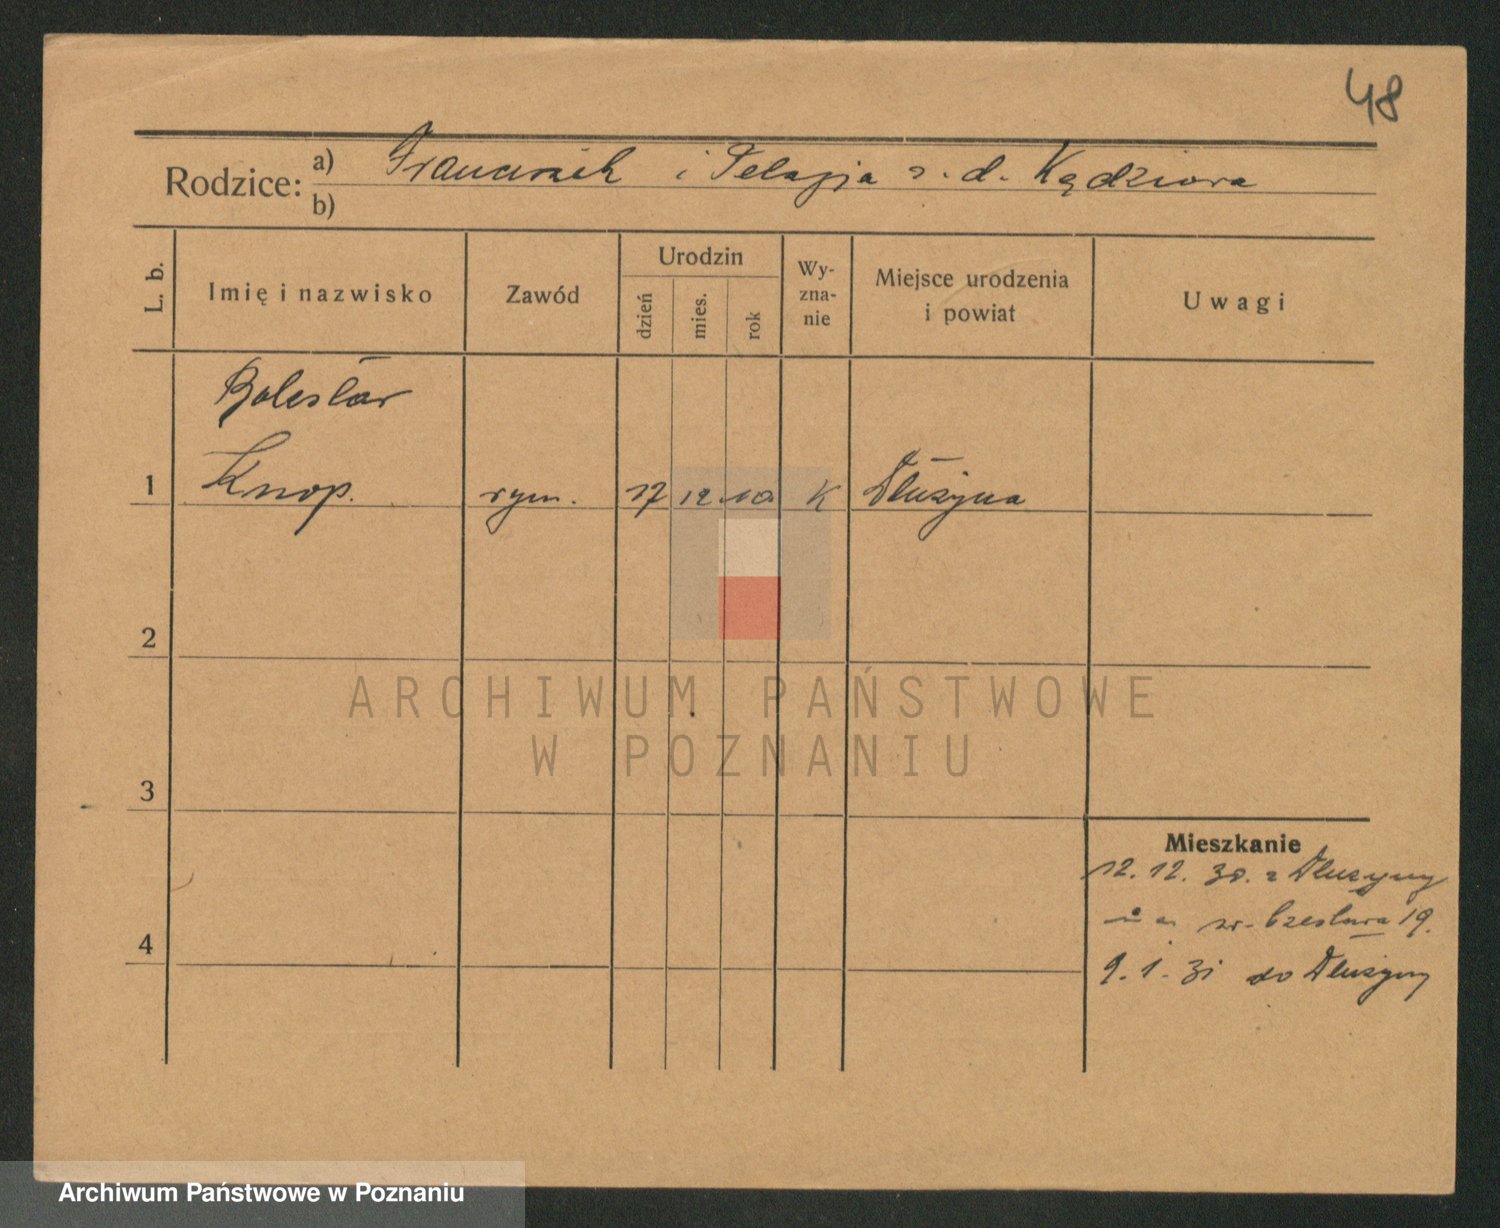 48
Rodzice: a) Franciszek i Pelagja z. d. Kędziora
b)
L. b. Imię i nazwisko Zawód Urodzin dzień mies. rok Wy-zna-nie Miejsce urodzenia i powiat Uwagi
Bolesław
1 Knop. rym. 17 12 10 K Dłużyna
2
ARCHIWUM PAŃSTWOWE
W POZNANIU
3
Mieszkanie
12. 12. 30. z Dłużyny
św. Czesława 19.
4
9. 1. 31 do Dłużyny
Archiwum Państwowe w Poznaniu